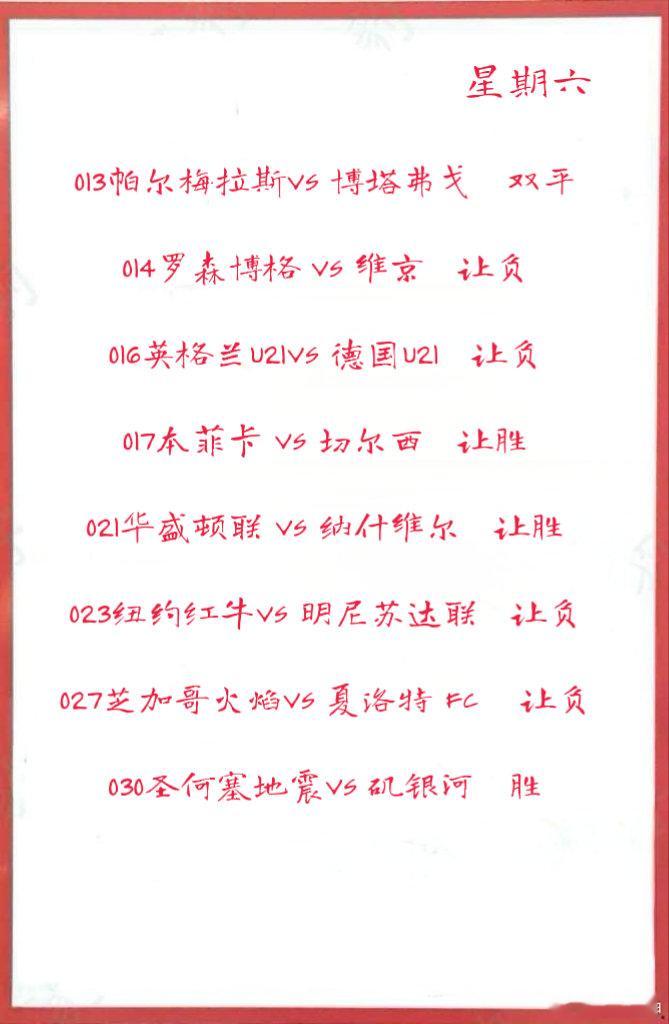 星期六
013帕尔梅拉斯VS 博塔弗戈 双平
014罗森博格 VS 维京 让负
016英格兰U21VS 德国U21 让负
017本菲卡 VS 切尔西 让胜
021华盛顿联 VS 纳什维尔 让胜
023纽约红牛VS 明尼苏达联 让负
027芝加哥火焰VS 夏洛特 FC 让负
030圣何塞地震VS 矶银河 胜